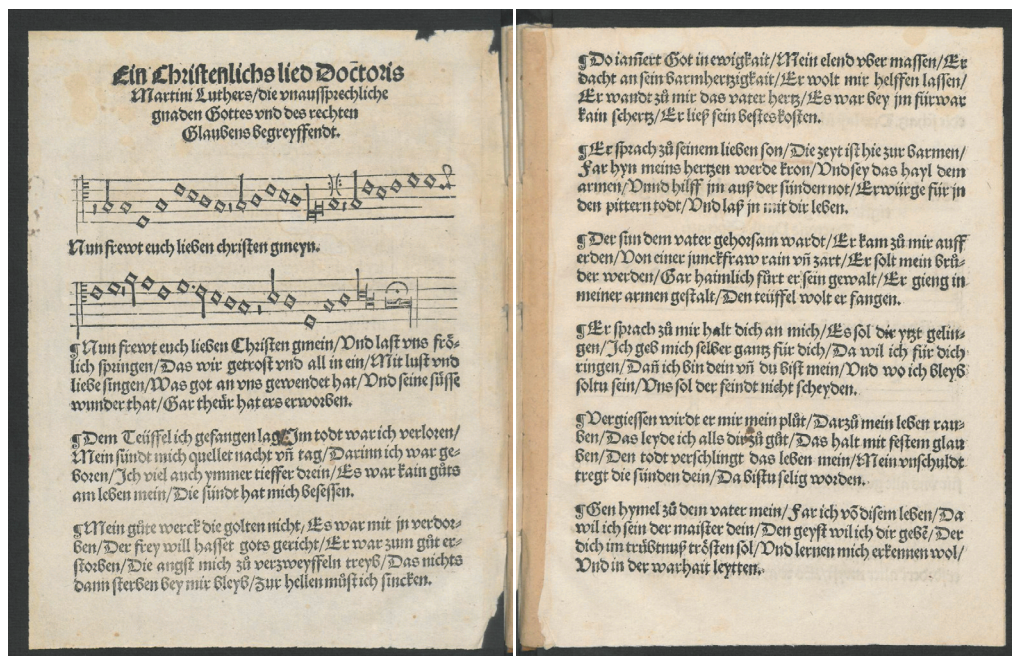 Ein Christenlichs lied Doctoris
Martini Luthers/die vnaussprechliche
gnaden Gottes vnd des rechten
Glaubens begreyffendt.
Nun frewt euch lieben christen gmeyn.
¶Nun frewt euch lieben Christen gmein/Vnd last vns frö-
lich springen/Das wir getrost vnd all in ein/Mit lust vnd
liebe singen/Was got an vns gewendet hat/Vnd seine süsse
wunder that/Gar theür hat ers erworben.
¶Dem Teüffel ich gefangen lag/Im todt war ich verloren/
Mein sündt mich quellet nacht vñ tag/Darinn ich war ge-
boren/Ich viel auch ymmer tieffer drein/Es war kain gůts
am leben mein/Die sündt hat mich besessen.
¶Mein gůte werck die golten nicht/Es war mit jn verdor-
ben/Der frey will hasset gots gericht/Er war zum gůt er-
storben/Die angst mich zů verzweyffeln treyb/Das nichts
dann sterben bey mir bleyb/Zur hellen můst ich sincken.
¶Do iam̃ert Got in ewigkait/Mein elend vber massen/Er
dacht an sein barmhertzigkait/Er wolt mir helffen lassen/
Er wandt zů mir das vater hertz/Es war bey jm fürwar
kain schertz/Er ließ sein bestes kosten.
¶Er sprach zů seinem lieben son/Die zeyt ist hie zur barmen/
Far hyn meins hertzen werde kron/Vnd sey das hayl dem
armen/Vnnd hilff jm auß der sünden not/Erwürge für jn
den pittern todt/Vnd laß jn mit dir leben.
¶Der sun dem vater gehorsam wardt/Er kam zů mir auff
erden/Von einer junckfraw rain vñ zart/Er solt mein brů-
der werden/Gar haimlich fürt er sein gewalt/Er gieng in
meiner armen gestalt/Den teüffel wolt er fangen.
¶Er sprach zů mir halt dich an mich/Es sol dir ytzt gelin-
gen/Ich geb mich selber gantz für dich/Da wil ich für dich
ringen/Dañ ich bin dein vñ du bist mein/Vnd wo ich bleyb
soltu sein/Vns sol der feindt nicht scheyden.
¶Vergiessen wirdt er mir mein plůt/Darzů mein leben rau-
ben/Das leyde ich alls dir zů gůt/Das halt mit festem glau
ben/Den todt verschlingt das leben mein/Mein vnschuldt
tregt die sünden dein/Da bistu selig worden.
¶Gen hymel zů dem vater mein/Far ich võ disem leben/Da
wil ich sein der maister dein/Den geyst wil ich dir gebẽ/Der
dich im trübtnuß trösten sol/Vnd lernen mich erkennen wol/
Vnd in der warhait leytten.